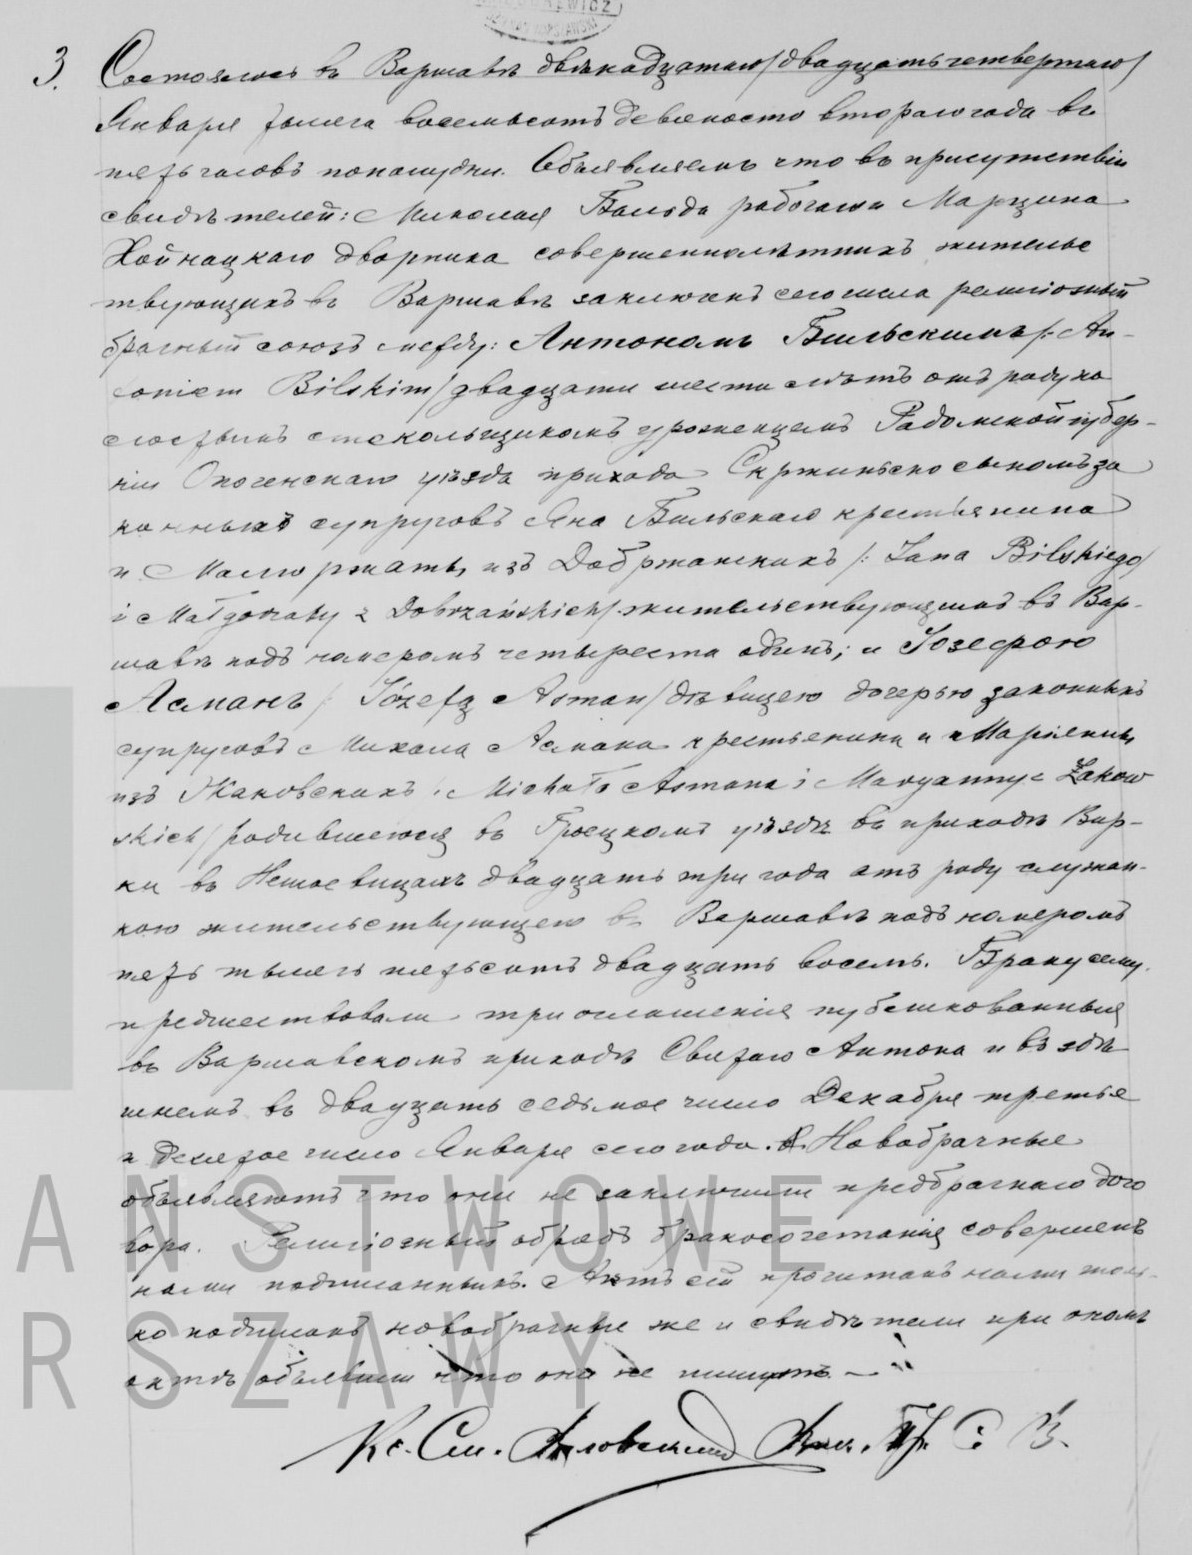 3. Состоялось въ Варшавѣ двѣнадцатаго /двадцать четвертаго/
Января тысяча восемьсотъ девяносто втораго года въ
пять часовъ пополудни. Объявляемъ что въ присутствіи
свидѣтелей: Миколая рабочаго и Марцина
Хойнацкаго дворника совершеннолѣтнихъ жительс
твующихъ въ Варшавѣ заключенъ сего числа религіозный
брачный союзъ между: Антономъ Бильскимъ /: An-
tonim Bilskim/ двадцати шести лѣтъ отъ роду хо
лостымъ стекольщикомъ урожденцемъ Радомской губер-
ніи Опоченскаго уѣзда прихода Скржинско сыномъ за
конныхъ супруговъ Яна Бильскаго крестьянина
и Малгоржаты изъ Добржанскихъ /: Jana Bilskiego
i Małgorzaty z Dobrzańskich/ жительствующимъ въ Вар-
шавѣ подъ номеромъ четыреста одинъ; и Юзефою
Асманъ / Józefą Asman/ дѣвицею дочерью законныхъ
супруговъ Михала Асмана крестьянина и Маріянны
изъ Жаковскихъ /: Michała Asmana i Maryanny z Żakow
skich/ родившеюся въ Гроецкомъ уѣздѣ въ приходѣ Вар-
ки въ двадцать три года отъ роду служан-
кою жительствующею въ Варшавѣ подъ номеромъ
пять тысячъ пятьсотъ двадцать восемь. Браку сему
предшествовали три оглашенія публикованныя
въ Варшавскомъ приходѣ Святаго Антона и въ здѣ
шнемъ въ двадцать седьмое число Декабря третье
и десятое число Января сего года. Новобрачные
объявляютъ что они не заключили предбрачнаго дого
вора. Религіозный обрядъ бракосочетанія совершенъ
нами подписаннымъ. Актъ сей прочитанъ нами толь-
ко подписанъ новобрачные же и свидѣтели при ономъ
актѣ объявили что они не пишутъ —
Кс. См.
ANSTWOWE
RSZAWY